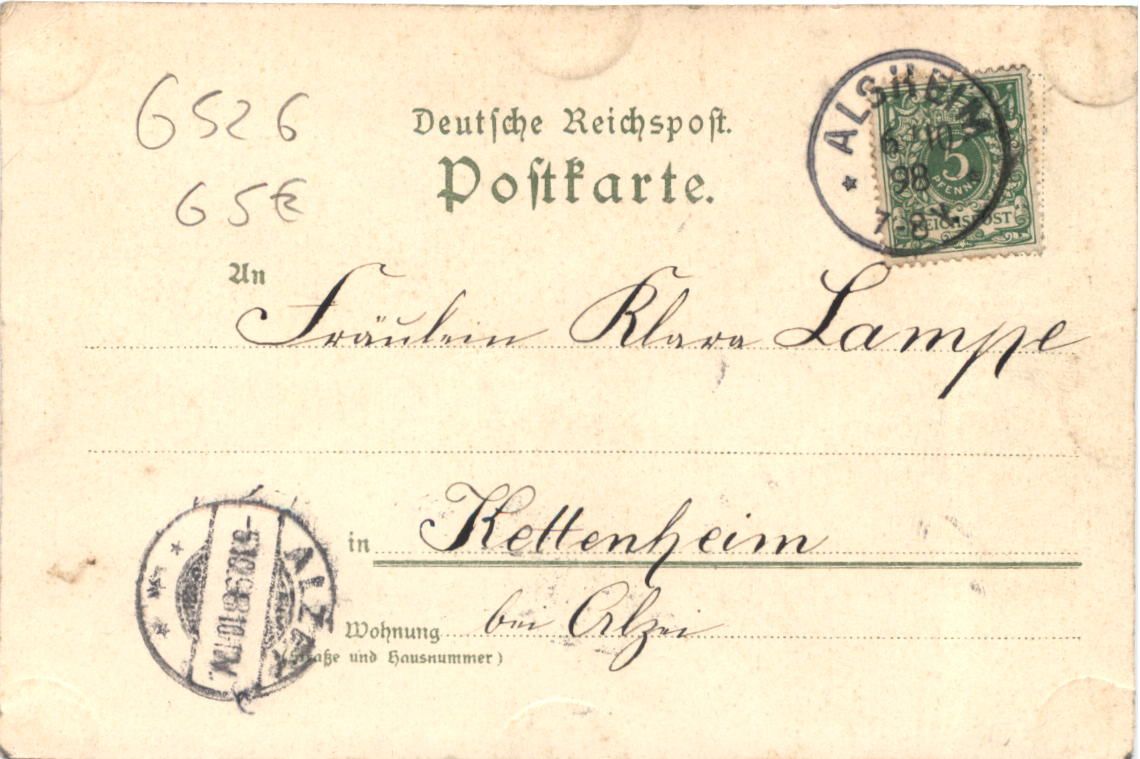 6526
65€
Deutsche Reichspost.
Postkarte.
ALSHEIM
6 10
98
7-8 N.
5
PFENNIG
REICHSPOST
An Fräulein Klara Lampe
in Kettenheim
Wohnung bei Alzei
(Straße und Hausnummer)
ALZEY